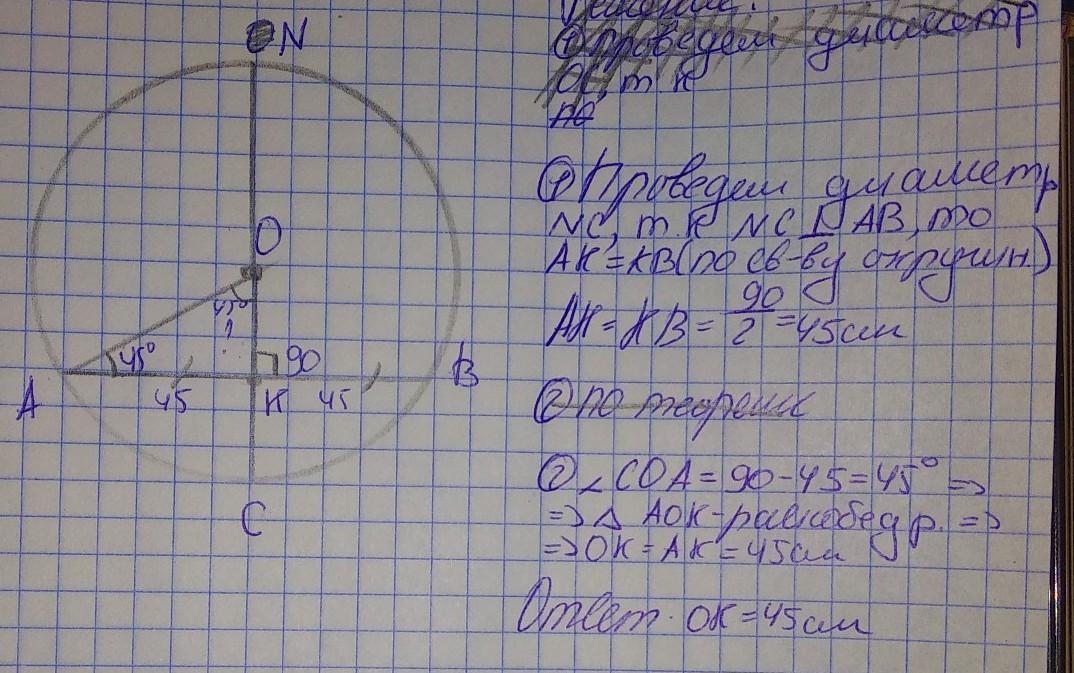 N
O
45°
?
45°
90
A
B
45
K
45
C
Решение:
① Проведем диаметр
OC, т К
AO
① Проведем диаметр
NC, т.к NC ⊥ AB, то
AK=KB(по св-ву окружн.)
AK=KB= 90/2 =45см
② по теореме
② ∠COA=90-45=45° =>
=>△ AOK-равнобедр. =>
=>OK=AK=45см
Ответ. OK=45см